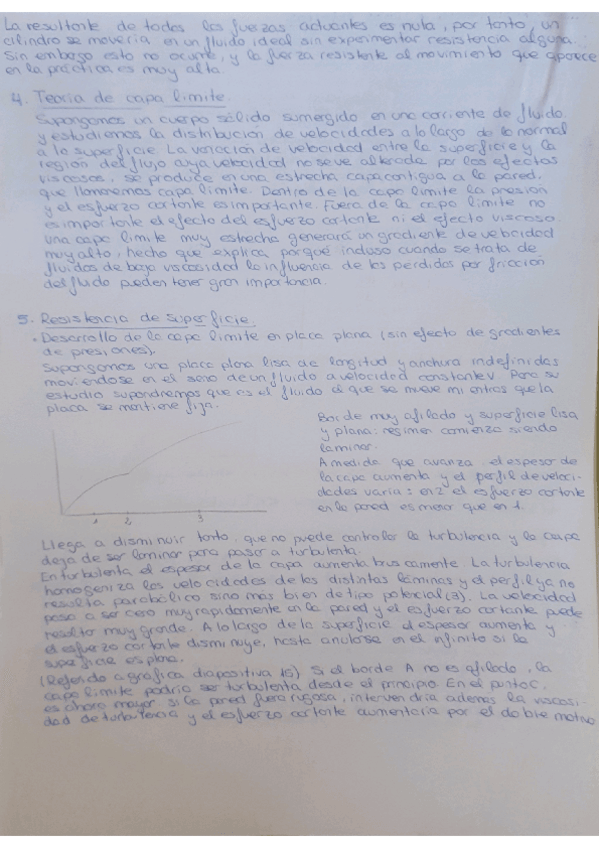 La resultante de todas las fuerzas actuantes es nula, por tanto, un
cilindro se movería en un fluido ideal sin experimentar resistencia alguna.
Sin embargo esto no ocurre, y la fuerza resistente al movimiento que aparece
en la práctica es muy alta.
4. Teoría de capa límite.
Supongamos un cuerpo sólido sumergido en una corriente de fluido
y estudiemos la distribución de velocidades a lo largo de la normal
a la superficie. La variación de velocidad entre la superficie y la
región del flujo cuya velocidad no se ve alterada por los efectos
viscosos, se produce en una estrecha capa contigua a la pared,
que llamaremos capa límite. Dentro de la capa límite la presión
y el esfuerzo cortante es importante. Fuera de la capa límite no
es importante el efecto del esfuerzo cortante ni el efecto viscoso.
Una capa límite muy estrecha generará un gradiente de velocidad
muy alto, hecho que explica porqué incluso cuando se trata de
fluidos de baja viscosidad la influencia de las pérdidas por fricción
del fluido pueden tener gran importancia.
5. Resistencia de superficie
• Desarrollo de la capa límite en placa plana (sin efecto de gradientes
de presiones).
Supongamos una placa plana lisa de longitud y anchura indefinidas
moviéndose en el seno de un fluido a velocidad constante v. Para su
estudio supondremos que es el fluido el que se mueve mientras que la
placa se mantiene fija.
Borde muy afilado y superficie lisa
y plana: régimen comienza siendo
laminar.
A medida que avanza, el espesor de
la capa aumenta y el perfil de veloci-
dades varía: en 2 el esfuerzo cortante
en la pared es menor que en 1.
1 2 3
Llega a disminuir tanto, que no puede controlar la turbulencia y la capa
deja de ser laminar para pasar a turbulenta.
En turbulenta el espesor de la capa aumenta bruscamente. La turbulencia
homogeniza las velocidades de las distintas láminas y el perfil ya no
resulta parabólico sino más bien de tipo potencial (3). La velocidad
pasa a ser cero muy rápidamente en la pared y el esfuerzo cortante puede
resultar muy grande. A lo largo de la superficie el espesor aumenta y
el esfuerzo cortante disminuye, hasta anularse en el infinito si la
superficie es plana.
(Referido a gráfica diapositiva 16) Si el borde A no es afilado, la
capa límite podría ser turbulenta desde el principio. En el punto C,
es ahora mayor. si la pared fuera rugosa, intervendría además la viscosi-
dad de turbulencia y el esfuerzo cortante aumentaría por el doble motivo